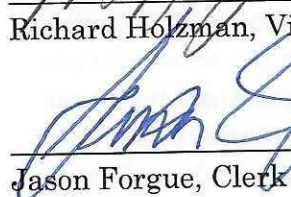 Richard Holzman, Vi
Jason Forgue, Clerk